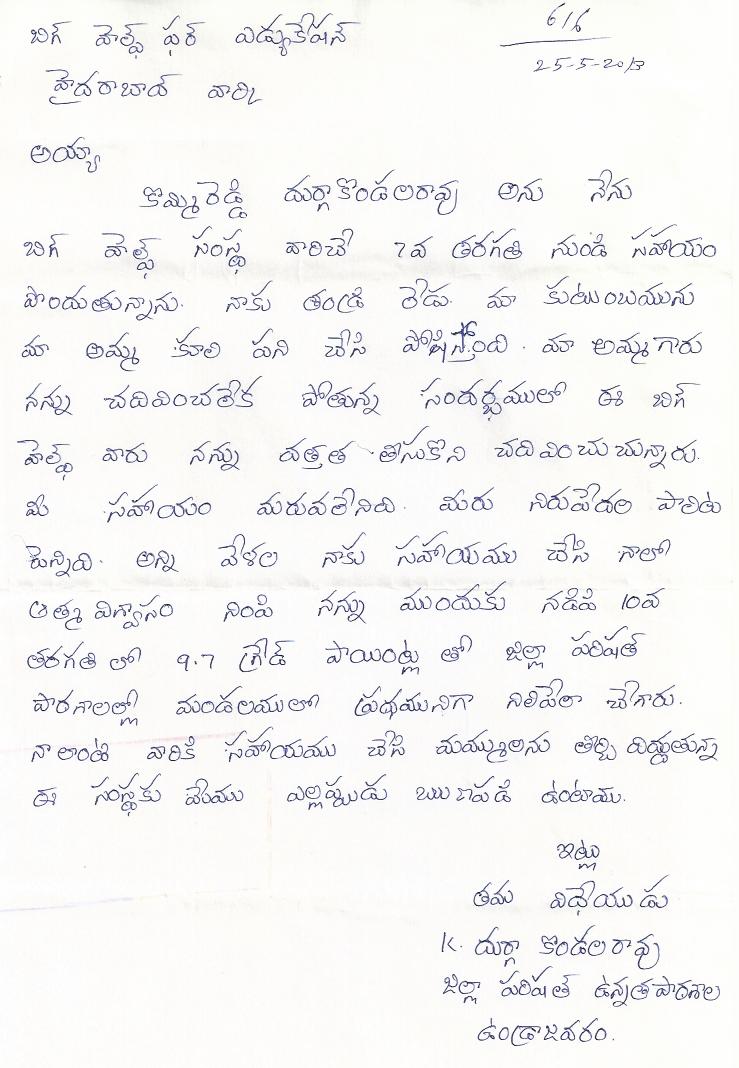 616
25-5-2013
బిగ్ హెల్ప్ ఫర్ ఎడ్యుకేషన్
హైదరాబాద్ వార్కి
అయ్యా
కొమ్మిరెడ్డి దుర్గాకొండలరావు అను నేను
బిగ్ హెల్ప్ సంస్థ వారిచే 7వ తరగతి నుండి సహాయం
పొందుతున్నాను. నాకు తండ్రి లేడు. మా కుటుంబమును
మా అమ్మ కూలి పని చేసి పోషిస్తోంది. మా అమ్మగారు
నన్ను చదివించలేక పోతున్న సందర్భములో ఈ బిగ్
హెల్ప్ వారు నన్ను దత్తత తీసుకొని చదివించుచున్నారు.
మీ సహాయం మరువలేనిది. మీరు నిరుపేదల పాలిట
పెన్నిది. అన్ని వేళల నాకు సహాయము చేసి నాలో
ఆత్మ విశ్వాసం నింపి నన్ను ముందుకు నడిపి 10వ
తరగతి లో 9.7 గ్రేడ్ పాయింట్లు తో జిల్లా పరిషత్
పాఠశాలల్లో మండలములో ప్రథమునిగా నిలిపేలా చేశారు.
నాలాంటి వారికి సహాయము చేసి మమ్ములను తీర్చి దిద్దుతున్న
ఈ సంస్థకు మేము ఎల్లప్పుడు ఋణపడి ఉంటాము.
ఇట్లు
తమ విధేయుడు
K. దుర్గా కొండలరావు
జిల్లా పరిషత్ ఉన్నతపాఠశాల
ఉండ్రాజవరం.